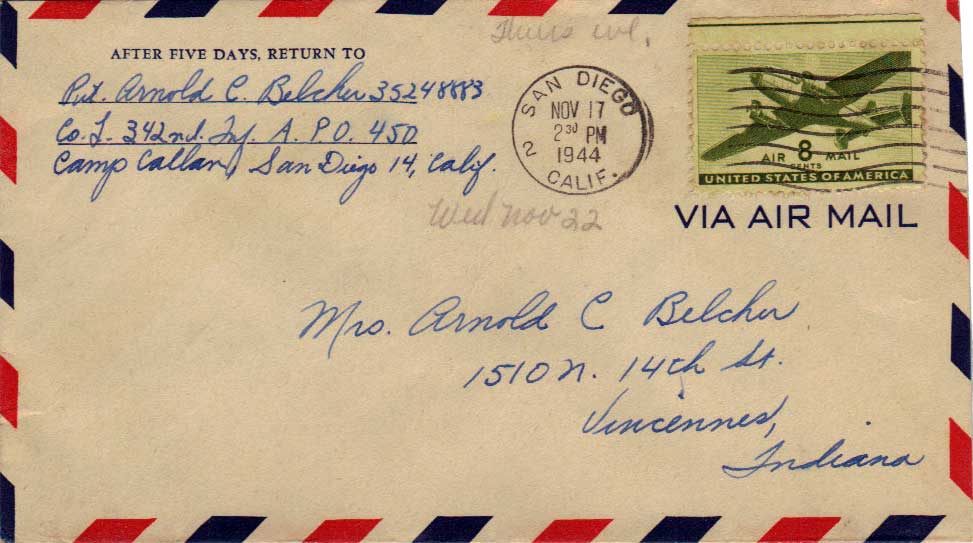 Thurs eve.
AFTER FIVE DAYS, RETURN TO
Pvt. Arnold C. Belcher 35248883
Co. I- 342nd. Inf. A. P.O. 450
Camp Callan, San Diego 14, Calif.
SAN DIEGO
NOV 17
2 30 PM
1944
2 CALIF.
AIR 8 MAIL
CENTS
UNITED STATES OF AMERICA
VIA AIR MAIL
Wed Nov 22
Mrs. Arnold C Belcher
1510 N. 14th St.
Vincennes,
Indiana